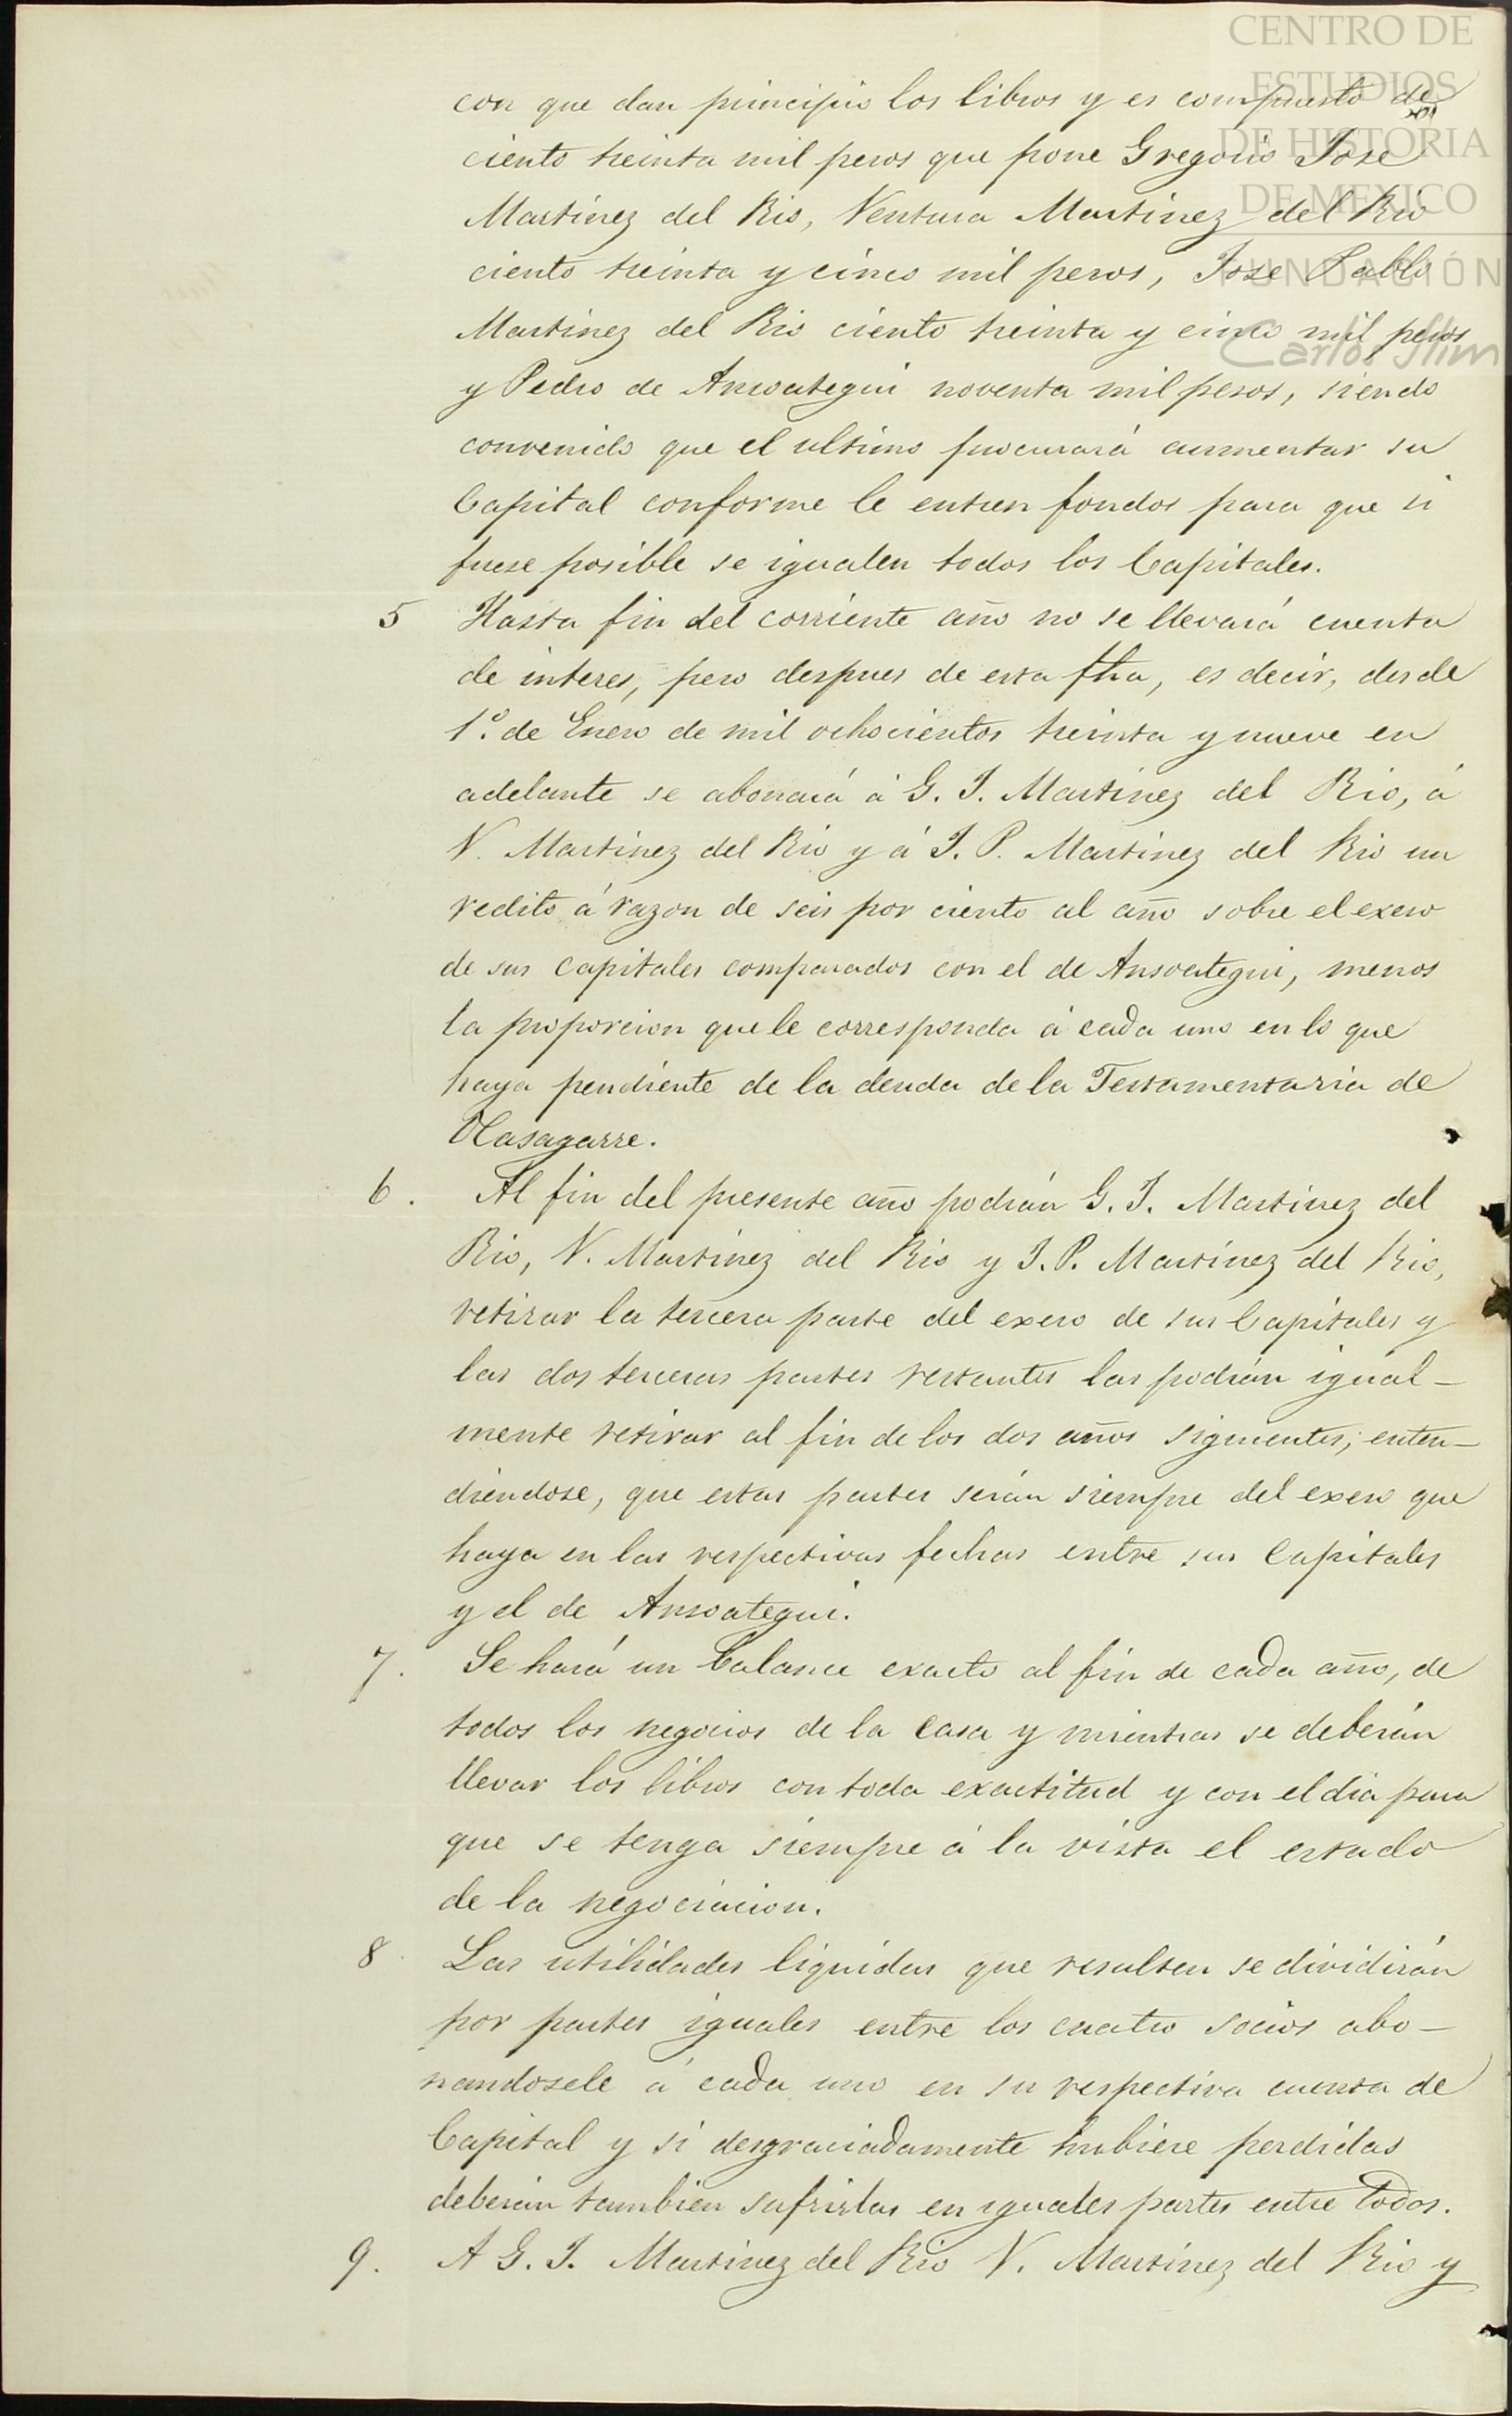 CENTRO DE
ESTUDIOS
DE HISTORIA
DE MEXICO
FUNDACIÓN
Carlos Slim
con que dan principio los libros y es compuesto de
ciento treinta mil pesos que pone Gregorio Jose
Martinez del Rio, Ventura Martinez del Rio
ciento treinta y cinco mil pesos, Jose Pablo
Martinez del Rio ciento treinta y cinco mil pesos
y Pedro de Ansoategui noventa mil pesos, siendo
convenido que el ultimo procurará aumentar su
Capital conforme le entren fondos para que si
fuese posible se igualen todos los Capitales.
5 Hasta fin del corriente año no se llevará cuenta
de interes, pero despues de esta fha, es decir, desde
1º. de Enero de mil ochocientos treinta y nueve en
adelante se abonará á G. J. Martinez del Rio, á
V. Martinez del Rio y á J. P. Martinez del Rio un
redito á razon de seis por ciento al año sobre el exeso
de sus Capitales comparados con el de Ansoategui, menos
la proporcion que le corresponda á cada uno en lo que
haya pendiente de la deuda de la Testamentaria de
Olasagarre.
6. Al fin del presente año podrán G. J. Martinez del
Rio, V. Martinez del Rio y J. P. Martinez del Rio,
retirar la tercera parte del exeso de sus Capitales y
las dos terceras partes restantes las podrán igual-
mente retirar al fin de los dos años siguientes; enten-
diendose, que estas partes serán siempre del exeso que
haya en las respectivas fechas entre sus Capitales
y el de Ansoategui.
7. Se hará un balance exacto al fin de cada año, de
todos los negocios de la Casa y mientras se deberán
llevar los libros con toda exactitud y con el dia para
que se tenga siempre á la vista el estado
de la negociacion.
8 Las utilidades liquidas que resulten se dividirán
por partes iguales entre los cuatro socios abo-
nandosele á cada uno en su respectiva cuenta de
Capital y si desgraciadamente hubiere perdidas
deberán tambien sufrirlas en iguales partes entre todos.
9. A G. J. Martinez del Rio V. Martinez del Rio y